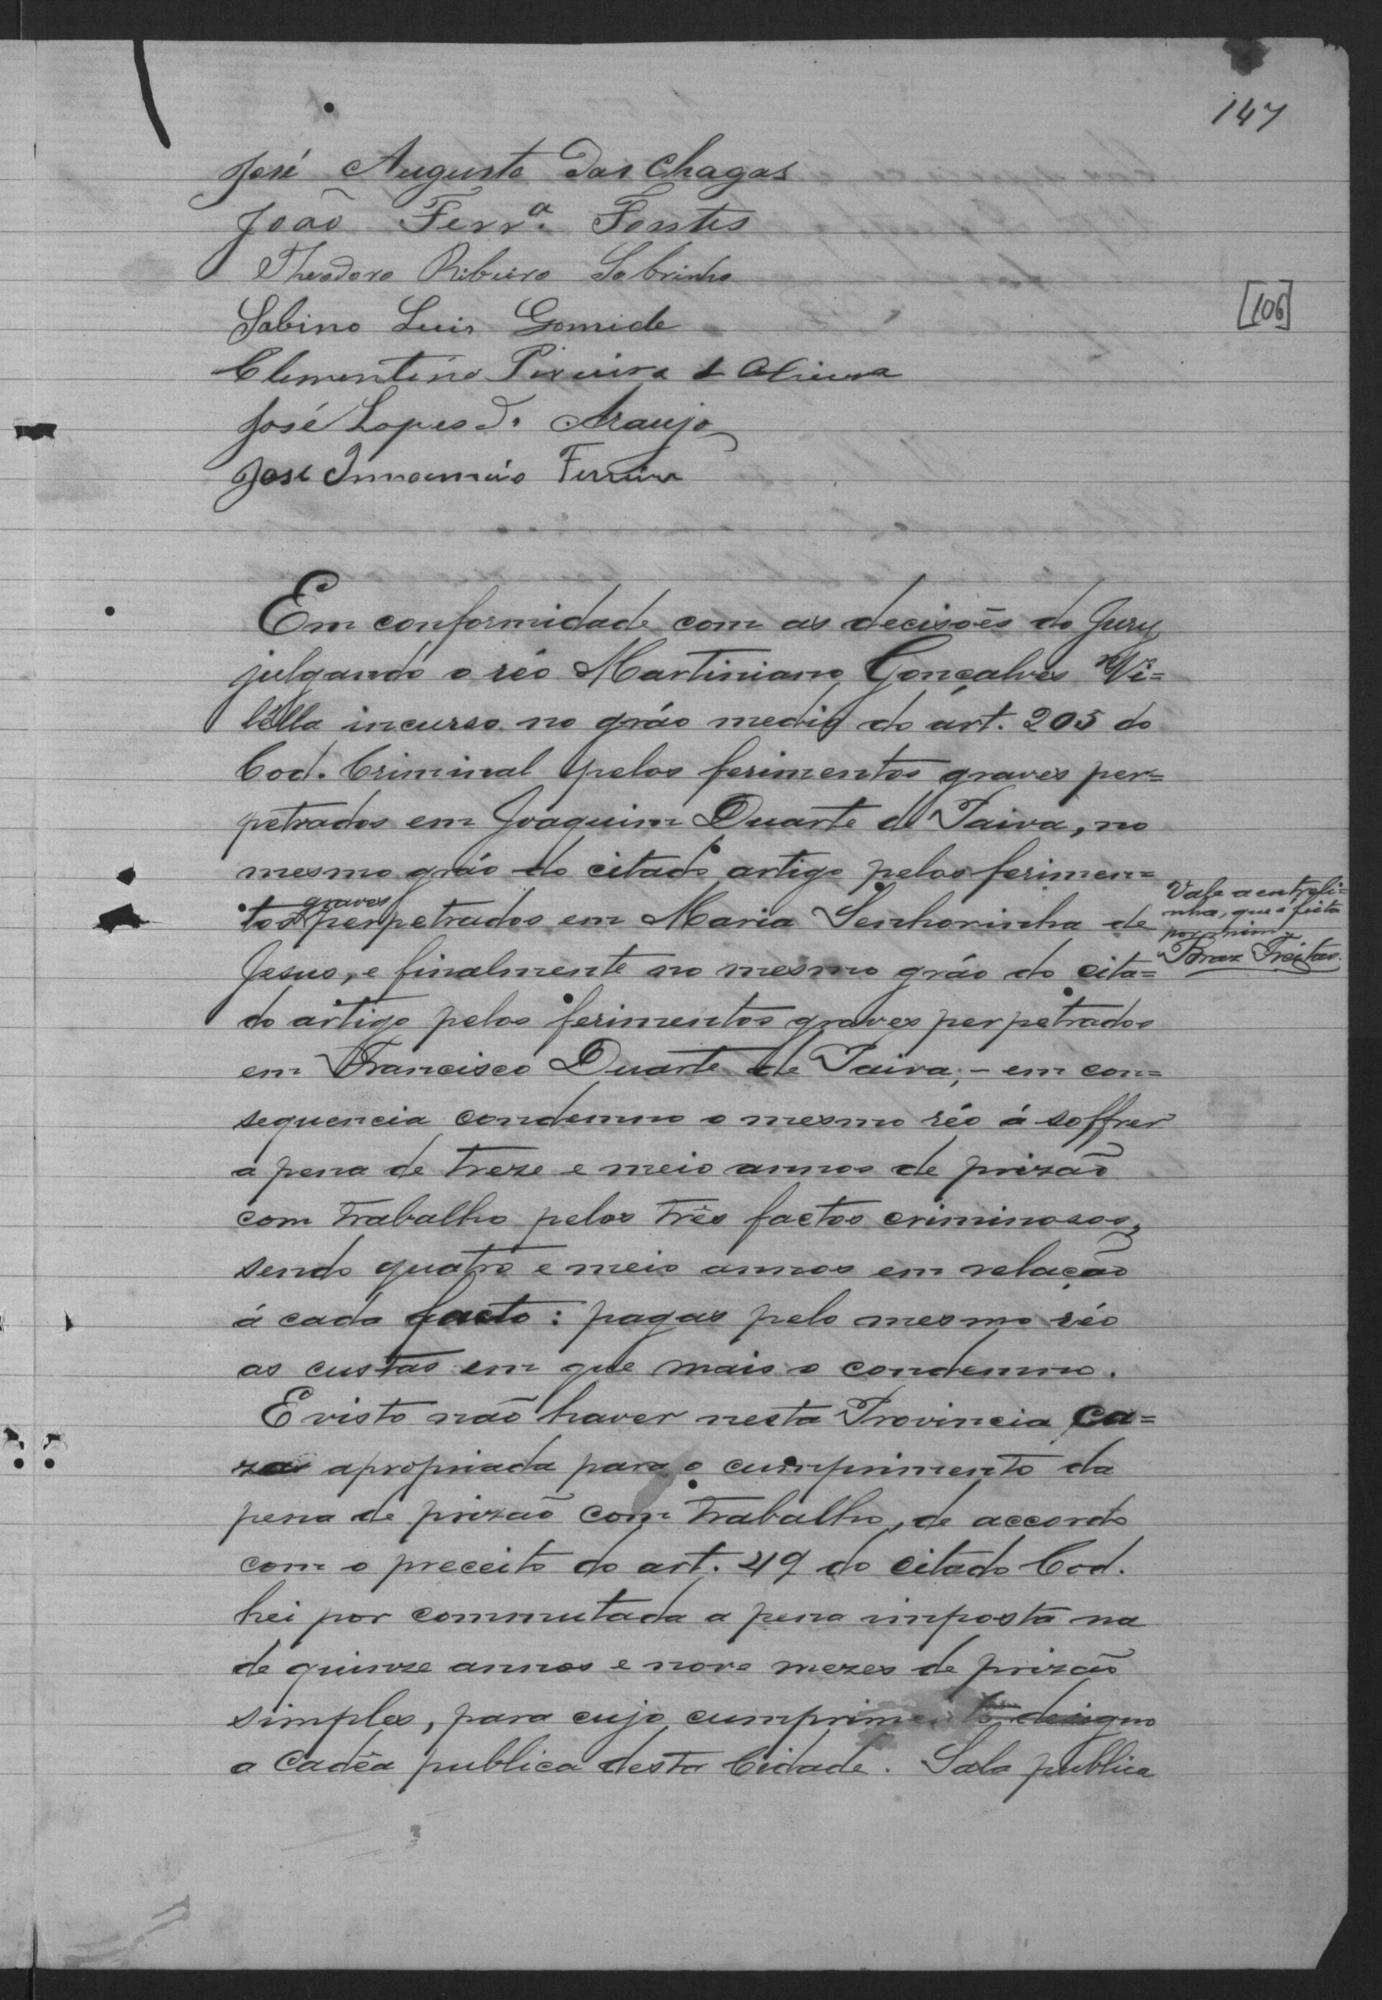 147
José Augusto das Chagas
João Ferr.ª Fontes
Theodoro Ribeiro Sobrinho
[106]
Sabino Luis Gomide
Clementino Pireira d Oliveira
José Lopes d. Araujo
José Innocencio Ferreira
Em conformidade com as decisões do Jury,
julgando o réo Martiniano Gonçalves Vi=
lélla incurso no gráo medio do art. 205 do
Cod. Criminal pelos ferimentos graves per=
petrados em Joaquim Duarte de Paiva, no
mesmo gráo do citado artigo pelos ferimen=
graves
tos perpetrados em Maria Senhorinha de
Vale a entreli=
nha, que é feita
por mim,
Braz Freitas.
Jesus, e finalmente no mesmo gráo do cita=
do artigo pelos ferimentos graves perpetrados
em Francisco Duarte de Paiva; – em con=
sequencia condemno o mesmo réo á soffrer
a pena de treze e meio annos de prizão
com trabalho pelos três factos criminosos,
sendo quatro e meio annos em relação
á cada facto: pagas pelo mesmo réo
as custas em que mais o condemno.
E visto não haver nesta Provincia ca=
za apropriada para o cumprimento da
pena de prizão com trabalho, de accordo
com o preceito do art. 49 do citado Cod.
hei por commutada a pena imposta na
de quinze annos e nove mezes de prizão
simples, para cujo cumprimento designo
a Cadêa publica desta Cidade. Sala publica